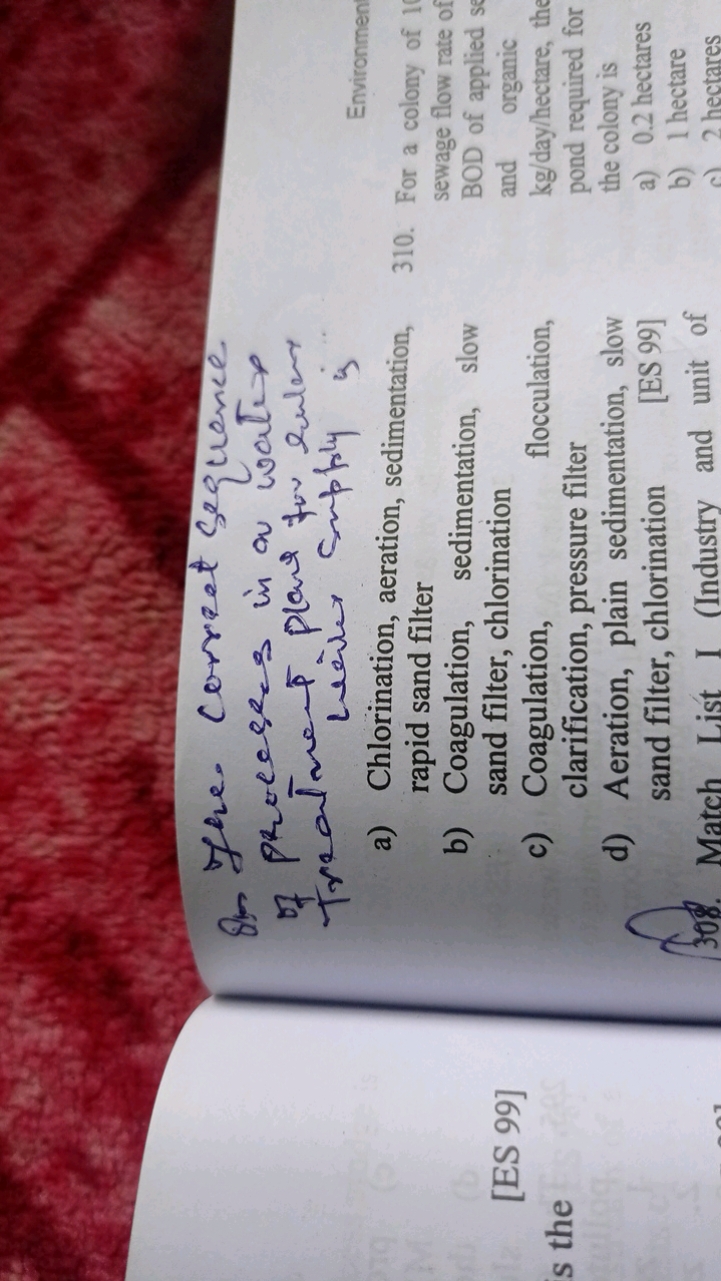 The correct sequence
of process in a water
treatment plant for
water supply is
a) Chlorination, aeration, sedimentation,
rapid sand filter
b) Coagulation, sedimentation, slow
sand filter, chlorination
c) Coagulation, flocculation,
clarification, pressure filter
d) Aeration, plain sedimentation, slow
sand filter, chlorination [ES 99]
308. Match List I (Industry and unit of
Environment
310. For a colony of
sewage flow rate of
BOD of applied
and organic
kg/day/hectare, the
pond required for
the colony is
a) 0.2 hectares
b) 1 hectare
c) 2 hectares
[ES 99]
the